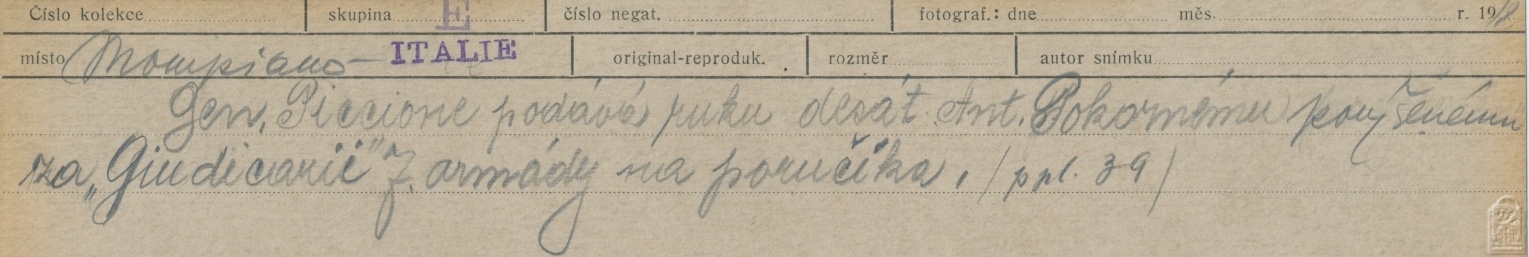 Číslo kolekce skupina E číslo negat. fotograf.: dne měs. r. 1918
místo Mompiano - ITALIE original-reproduk. rozměr autor snímku
Gen. Piccione podává ruku desát. Ant. Pokornému povýšenému
za „Giudicarii" 7. armády na poručíka. (ppl. 39)